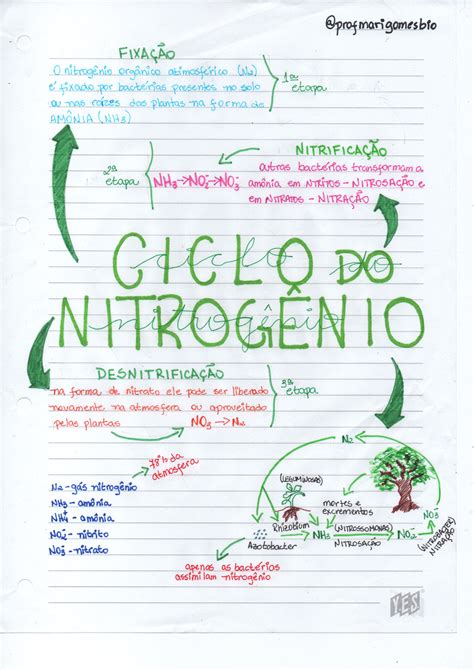 @profmarigomesbio
FIXAÇÃO
O nitrogênio orgânico atimosférico (N₂)
é fixado por bactérias presentes no solo
ou nas raízes dos plantas na forma de
AMÔNIA (NH3)
1ª
etapa
NITRIFICAÇÃO
2ª
etapa
NH3→NO2⁻→NO3⁻
outras bactérias transformam a
amônia em NITRITOS - NITROSAÇÃO e
em NITRATOS - NITRAÇÃO
CICLO DO
ciclo do
NITROGÊNIO
nitrogênio
DESNITRIFICAÇÃO
3ª
etapa
na forma de nitrato ele pode ser liberado
novamente na atmosfera ou aproveitado
pelas plantas
NO3⁻→N2
78% da
atmosfera
N2 - gás nitrogênio
NH3 - amônia
NH4⁺ - amônia
NO2⁻ - nitrito
NO3⁻ - nitrato
N2
(LEGUMINOSAS)
mortes e
excrementos
Rhizobium
Azotobacter
NH3
(NITROSSOMONAS)
NITROSAÇÃO
NO2⁻
NO3⁻
NITRAÇÃO
apenas as bactérias
assimilam nitrogênio
YES